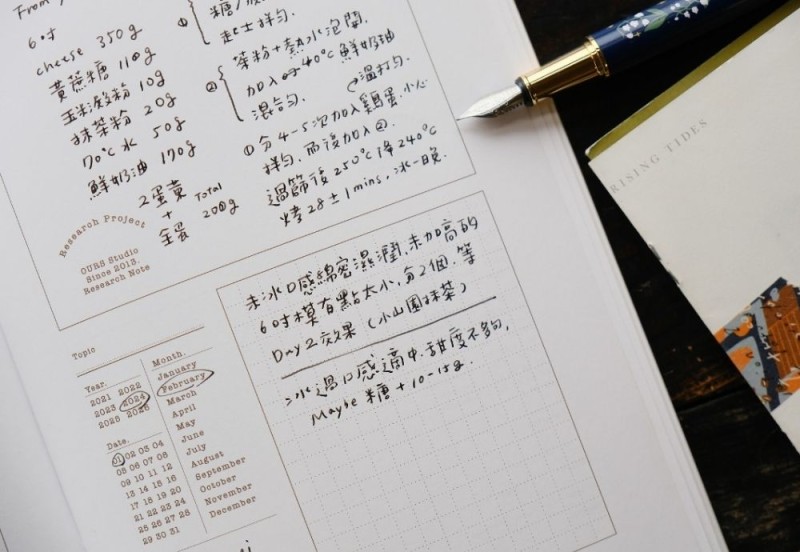 From
糖
起士拌勻.
①
6吋
cheese 350g
黃蔗糖 110g
玉米澱粉 10g
抹茶粉 20g
70°C 水 50g
鮮奶油 170g
2蛋黃
+
全蛋
Total
200g
②
茶粉+熱水泡開.
加入 40°C 鮮奶油
混合勻.
溫打勻.
①分4-5次加入雞蛋.小心
拌勻.而後加入②.
過篩後 250°C 降 240°C
烤 28±1mins, 冰一晚.
Research Project
OURS Studio
Since 2013.
Research Note
未冰口感綿密濕潤,未加高的
6吋模有點太小,分2個.等
Day2效果(小山園抹茶)
冰過口感適中.甜度不夠,
Maybe 糖+10-15g.
Topic
Year.
2021 2022
2023 2024
2025 2026
Date.
01 02 03 04
05 06 07 08
09 10 11 12
13 14 15 16
17 18 19 20
21 22 23 24
25 26 27 28
29 30 31
Month.
January
February
March
April
May
June
July
August
September
October
November
December
RISING TIDES